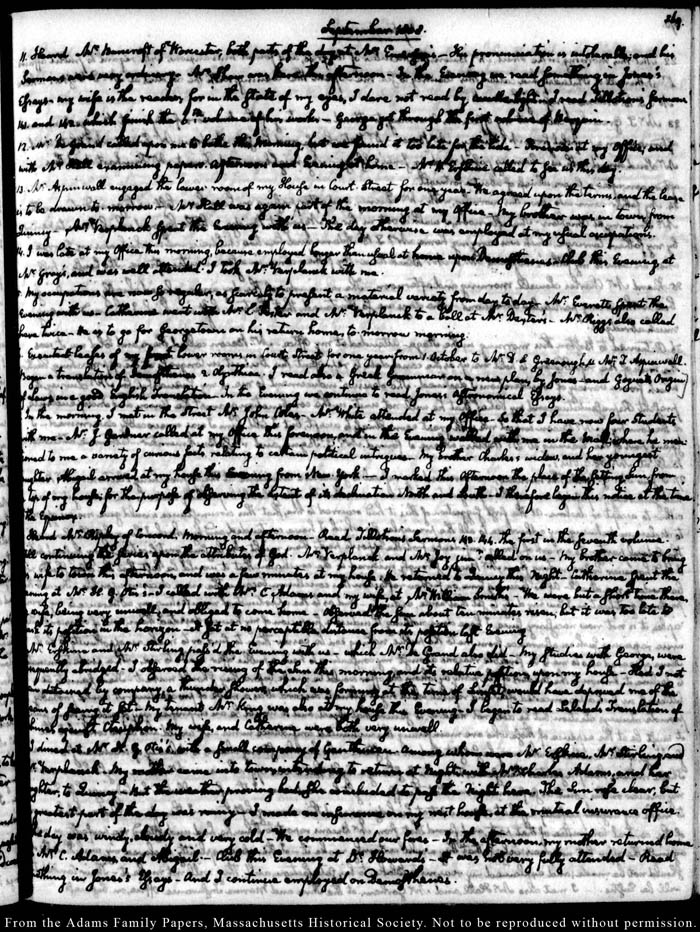 269.
September 1808.
11. Heard Mr. Bancroft of Worcester, both parts of the day at Mr. Emerson's — His pronunciation is intolerable, and his
Sermons were very ordinary. Mr. Shaw was here this afternoon — In the Evening we read something in Jones's
Essays — my wife is the reader, for in the State of my eyes, I dare not read by candle light. I read Tillotson's Sermons
141 and 142. which finish the 6th volume of his works — George got through the first volume of
12. Mr. called upon me to bathe this Morning, but we found it too late for the tide — at my Office, and
with Mr. Hall examining papers. Afternoon and Evening at home — Mr. W. Erskine called to see us this day.
13. Mr. Aspinwall engaged the lower room of my House in Court Street for one year — We agreed upon the terms, and the lease
is to be drawn to-morrow — Mr. Hall was again part of the morning at my Office — My brother was in town from
Quincy — Mr. Verplanck spent the Evening with us — The day otherwise was employed at my usual occupations.
14. I was late at my Office this morning, because employed longer than usual at home upon Demosthenes — Club this Evening at
Mr. Gray's, and was well attended. I took Mr. Verplanck with me.
My occupations are now so regular, as scarcely to present a material variety from day to day — Mr. Everett spent the
Evening with us — Catherine went with Mr. C. and Mr. Verplanck to a ball at Mr. Dexter's — Mr. Riggs also called
here twice — He is to go for Georgetown on his return home, to-morrow morning.
Executed leases of my lower rooms in Court Street for one year from 1 October to Mr. D. Greenough, & Mr. T. Aspinwall.
Began a translation of Demosthenes 2 Olynthiac. I read also a Greek Grammar on a new plan, by Jones — and Goguet's Origin
of Laws, in a good English Translation — In the Evening we continue to read Jones's Astronomical Essays.
In the morning, I met in the Street Mr. John Coles — Mr. White attended at my Office — So that I have now four Students
with me — Mr. J. Gardner called at my Office this forenoon, and in the Evening walked with me in the Mall, where he men-
tioned to me a variety of curious facts relating to certain political intrigues — My brother Charles's widow, and her youngest
daughter Abigail arrived at my house this Evening from New York — I marked this Afternoon the place of the setting Sun from
top of my house, for the purpose of observing the extent of its declination North and South. I therefore begin this notice at the time
the Equinox.
Heard Mr. Ripley of Concord. Morning and afternoon — Read Tillotson's Sermons 143. 144. the first in the Seventh volume.
Still continuing the Series upon the attributes of God. Mr. Verplanck and Mr. Joy junr. called on us — My brother came to bring
his wife to town this afternoon, and was a few minutes at my house. He returned to Quincy this Night. Catherine spent the
evening at Mr. H. G. Otis's — I called with Mrs. C. Adams and my wife, at Mr. William Smith's — We were but a short time there,
my wife, being very unwell, and obliged to come home — Observed the Sun about ten minutes risen, but it was too late to
its position in the horizon — It set at no perceptible distance from its position last Evening
Mr. Erskine and Mr. Stirling passed the Evening with us — which Mr. Le Grand also did — My Studies with George, were
abridged. I observed the rising of the Sun this morning, and its relative position, upon my house — Had I not
been detained by company, a thunder shower, which was forming at the time of Sunset, would have deprived me of the
means of seeing it set — My tenant Mr. King was also at my house this Evening — I began to read Leland's Translation of
against Ctesiphon. My wife, and Catherine were both very unwell.
I dined at Mr. H. G. Otis's, with a small company of Gentlemen — Among whom were Mr. Erskine, Mr. Stirling, and
Mr. Verplanck — My mother came into town, intending to return at Night, with Mrs. Charles Adams, and her
daughter, to Quincy — But the weather, proving bad, She concluded to pass the Night here. The Sun rose clear, but
greatest part of the day was rainy — I made an insurance on my west house, at the mutual insurance Office.
The day was windy, cloudy and very cold — We commenced our fires — In the afternoon, my mother returned home
Mrs. C. Adams, and Abigail — Club this Evening at Dr. Howard's — It was not very fully attended — Read
something in Jones's Essays — And I continue employed on Demosthenes.
From the Adams Family Papers, Massachusetts Historical Society. Not to be reproduced without permission